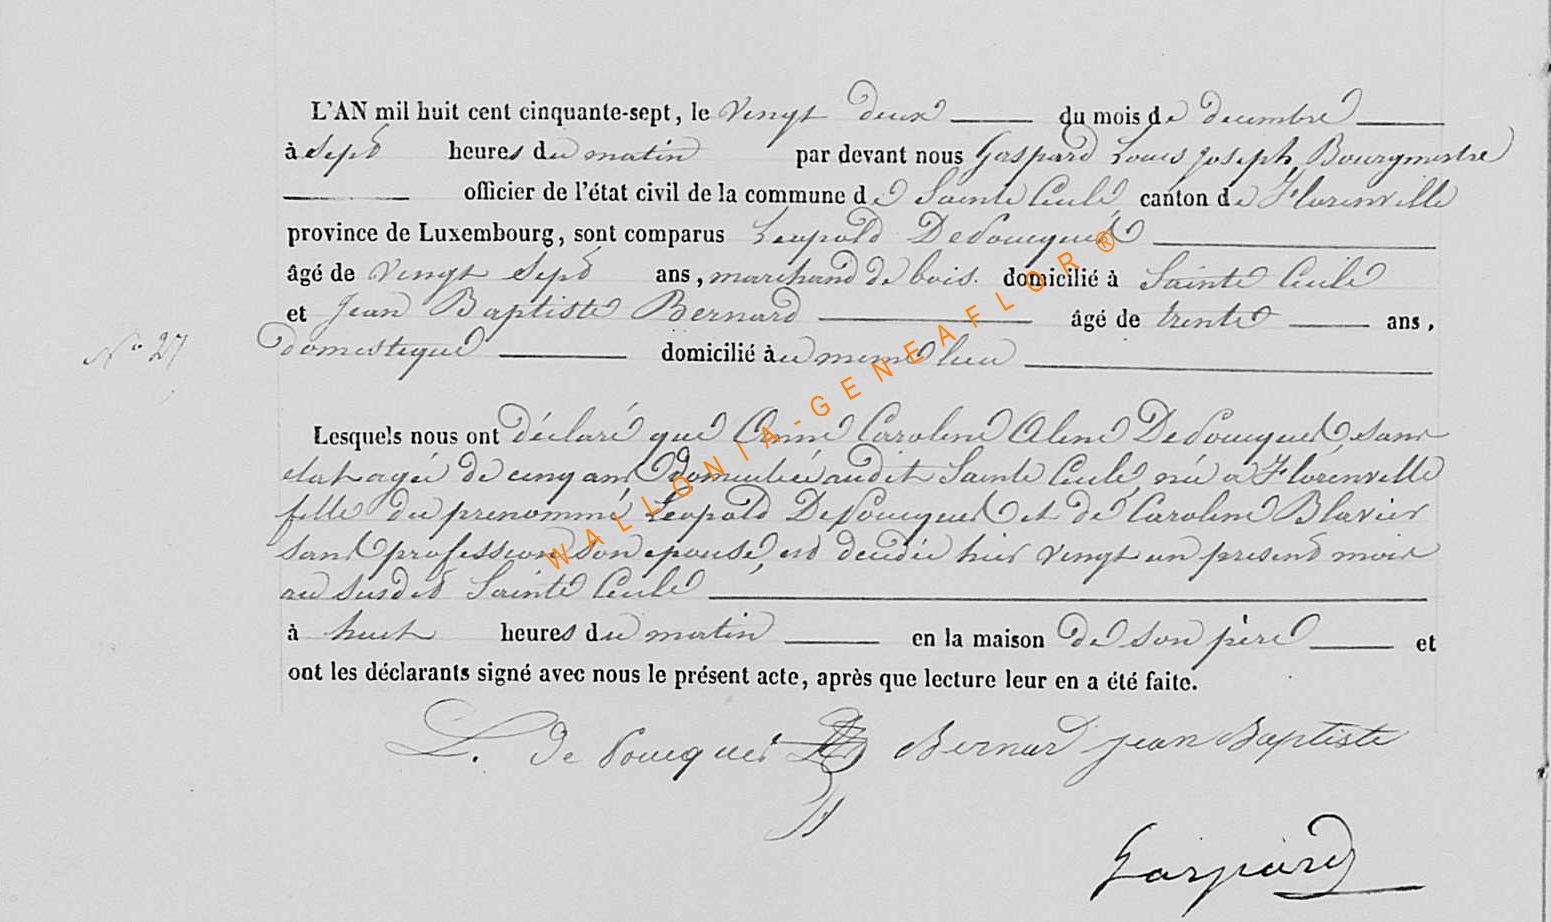 L'AN mil huit cent cinquante-sept, le vingt deux du mois de decembre
à sept heures du matin par devant nous Gaspard Louis Joseph, Bourgmestre
officier de l'état civil de la commune de Sainte Cecile, canton de Florenville
province de Luxembourg, sont comparus Leopold DeFoucquet
âgé de vingt sept ans, marchand de bois. domicilié à Sainte Cecile
et Jean Baptiste Bernard âgé de trente ans,
N° 27
domestique domicilié au meme lieu
Lesquels nous ont déclaré que Anne Caroline Aline DeFoucquet sans
etat agée de cinq ans, domiciliée audit Sainte Cecile, née a Florenville
fille du prenommé Leopold DeFoucquet et de Caroline Blavier
sans profession son epouse, est decedée hier vingt un present mois
au susdit Sainte Cecile
à huit heures du matin en la maison de son père et
ont les déclarants signé avec nous le présent acte, après que lecture leur en a été faite.
L. De Foucquet Bernard jean Baptiste
Gaspard
WALLONIA-GENEAFLOR®